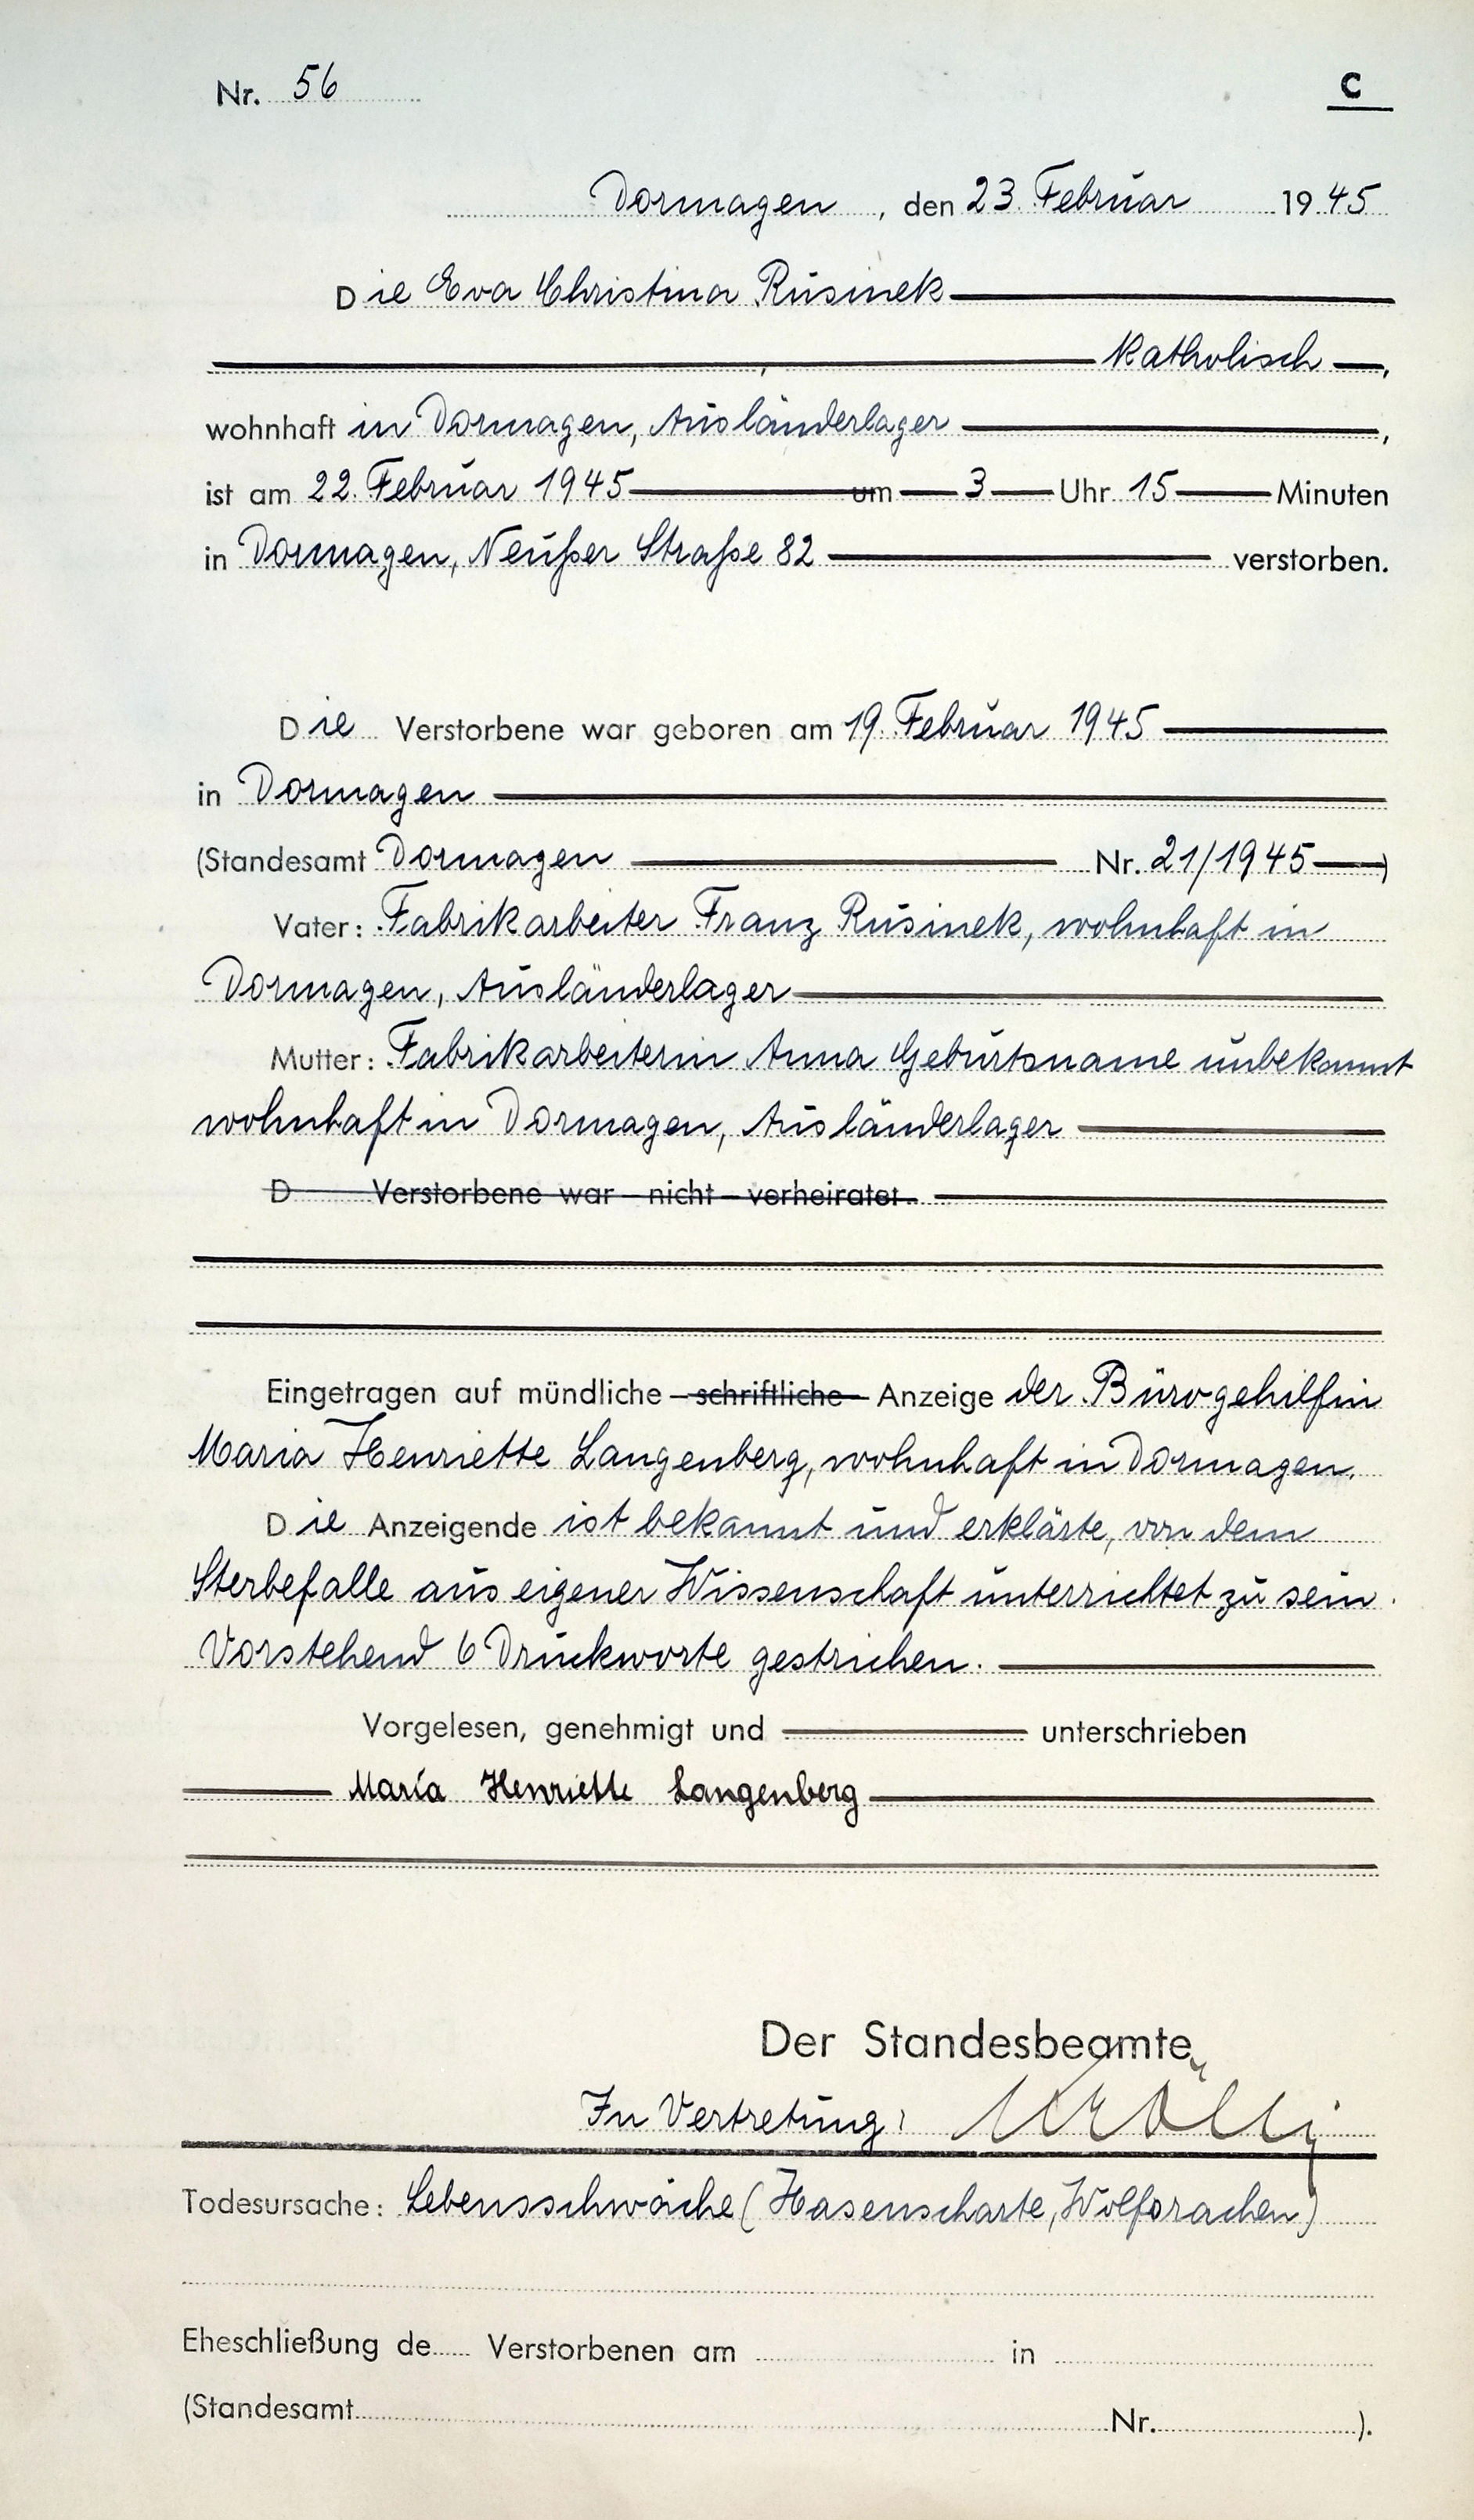 Nr. 56
C
Dormagen, den 23. Februar 1945
Die Eva Christina Rusinek
, katholisch ,
wohnhaft in Dormagen, Ausländerlager ,
ist am 22. Februar 1945 um 3 Uhr 15 Minuten
in Dormagen, Neußer Straße 82 verstorben.
Die Verstorbene war geboren am 19. Februar 1945
in Dormagen
(Standesamt Dormagen Nr. 21/1945 )
Vater: Fabrikarbeiter Franz Rusinek, wohnhaft in
Dormagen, Ausländerlager
Mutter: Fabrikarbeiterin Anna Geburtsname unbekannt
wohnhaft in Dormagen, Ausländerlager
D Verstorbene war nicht verheiratet.
Eingetragen auf mündliche schriftliche Anzeige der Bürogehilfin
Maria Henriette Langenberg, wohnhaft in Dormagen.
Die Anzeigende ist bekannt und erklärte, von dem
Sterbefalle aus eigener Wissenschaft unterrichtet zu sein.
Vorstehend 6 Druckworte gestrichen.
Vorgelesen, genehmigt und unterschrieben
Maria Henriette Langenberg
Der Standesbeamte
In Vertretung:
Todesursache: Lebensschwäche (Hasenscharte, Wolfsrachen)
Eheschließung de Verstorbenen am in
(Standesamt Nr. ).